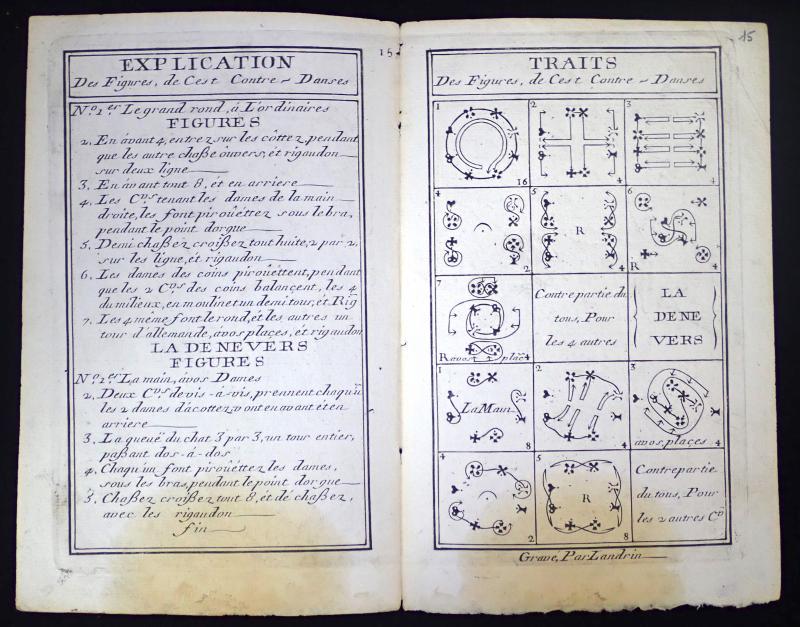 EXPLICATION
Des Figures, de Cest Contre-Danses
Nº. 1.er Le grand rond, à L'ordinaires
FIGURES
2. En avant 4, entrez sur les côttez, pendant
que les autre chaßez ouvers, et rigaudon
sur deux ligne
3. En avant tout 8, et en arriere
4. Les C.vs tenant les dames de la main
droite, les font piroüettez sous le bra,
pendant le point dorgue
5. Demi chaßez croißez tout huite, 2 par 2,
sur les ligne, et rigaudon
6. Les dames des coins piroüettent, pendant
que les 2 C.vs des coins balançent, les 4
du milieux, en moulinet un demi tour, et Rig
7. Les 4 même font le rond, et les autres un
tour d'allemande, à vos plaçes, et rigaudon
LA DENEVERS
FIGURES
Nº. 1.er La main, à vos Dames
2. Deux C.vs de vis-à-vis, prennent chaqu'ün
les 2 dames d'à cottez, vont en avant et en
arriere
3. La queuë du chat 3 par 3, un tour entier,
paßant dos-à-dos
4. Chaqu'un font piroüettez les dames,
sous les bras, pendant le point dorgue
5. Chaßez croißez tout 8, et dé chaßez,
avec les rigaudon
fin
15
15
TRAITS
Des Figures, de Cest Contre-Danses
1
16
2
4
3
4
4
2
5
R
4
6
R
7
R a vos plaç 4
Contre partie du
tous, Pour
les 4 autres
LA
DE NE
VERS
1
La Main
8
2
4
3
a vos plaçes 4
4
2
5
R
8
Contre partie
du tous, Pour
les 2 autres C.D
Gravé, Par Landrin